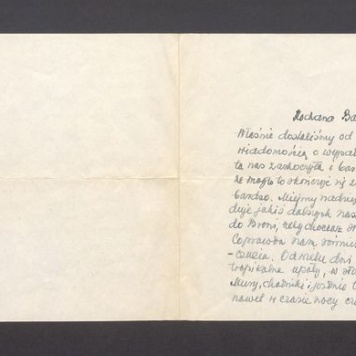 Kochana Ba
Właśnie dostaliśmy od
wiadomością o wypad
ta nas zaskoczyła i bar
że mogło to skończyć się
bardzo. Miejmy nadziej
duje jakiś dalszych nas
do Broni, czy chociaż
Coprawda nam również
- czucia. Od wielu dni
tropikalne upały, w
Mury, chodniki i jezdnie t
nawet w czasie nocy